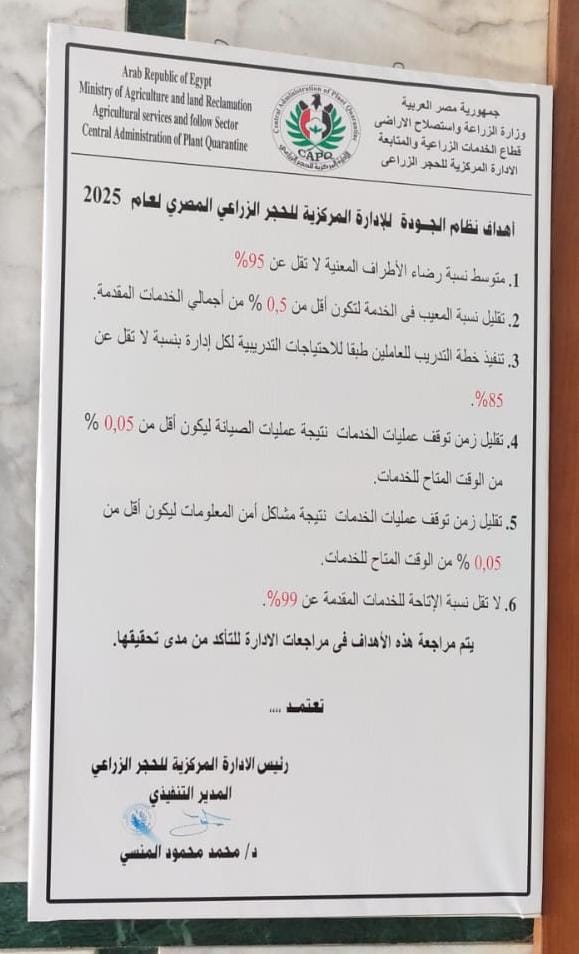 Arab Republic of Egypt
Ministry of Agriculture and land Reclamation
Agricultural services and follow Sector
Central Administration of Plant Quarantine
Central Administration of Plant Quarantine
CAPQ
الادارة المركزية للحجر الزراعي
جمهورية مصر العربية
وزارة الزراعة واستصلاح الاراضى
قطاع الخدمات الزراعية والمتابعة
الادارة المركزية للحجر الزراعى
أهداف نظام الجـودة للإدارة المركزية للحجر الزراعي المصري لعام 2025
1. متوسط نسبة رضاء الأطراف المعنية لا تقل عن 95%
2. تقليل نسبة المعيب فى الخدمة لتكون أقل من 0,5 % من أجمالي الخدمات المقدمة.
3. تنفيذ خطة التدريب للعاملين طبقا للاحتياجات التدريبية لكل إدارة بنسبة لا تقل عن
85%.
4. تقليل زمن توقف عمليات الخدمات نتيجة عمليات الصيانة ليكون أقل من 0,05 %
من الوقت المتاح للخدمات.
5. تقليل زمن توقف عمليات الخدمات نتيجة مشاكل أمن المعلومات ليكون أقل من
0,05 % من الوقت المتاح للخدمات.
6. لا تقل نسبة الإتاحة للخدمات المقدمة عن 99%.
يتم مراجعة هذه الأهداف فى مراجعات الادارة للتأكد من مدى تحقيقها.
تعتمـد ....
رئيس الادارة المركزية للحجر الزراعي
المدير التنفيذي
د/ محمد محمود المنسي